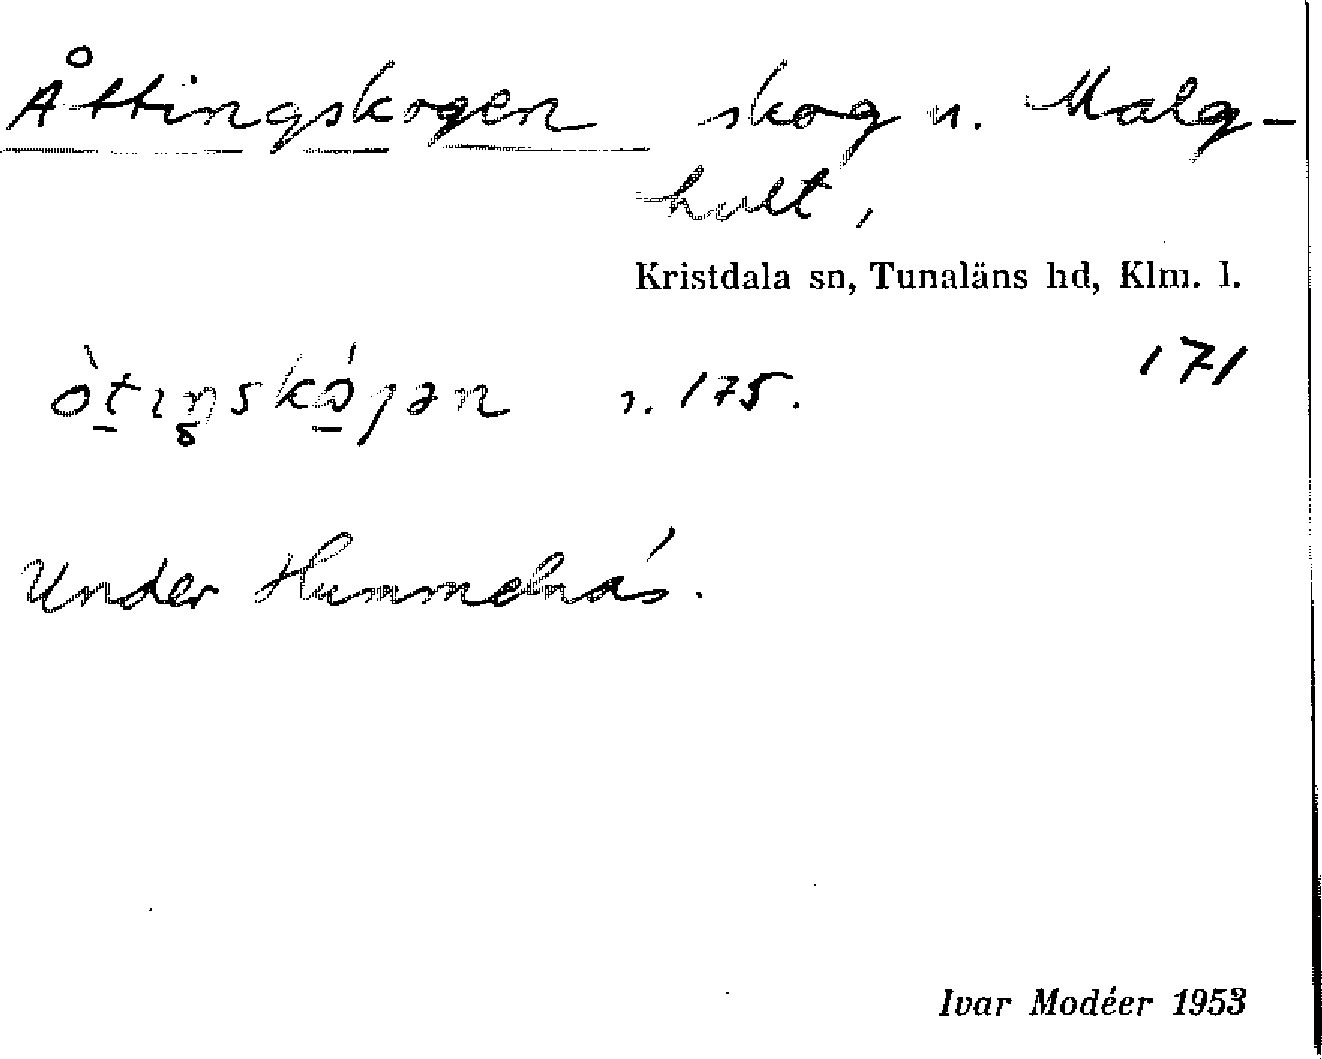 Åttingskogen skog n. Malg-
hult,
Kristdala sn, Tunaläns hd, Klm. l.
171
175.
Under Hummelnäs.
Ivar Modéer 1953